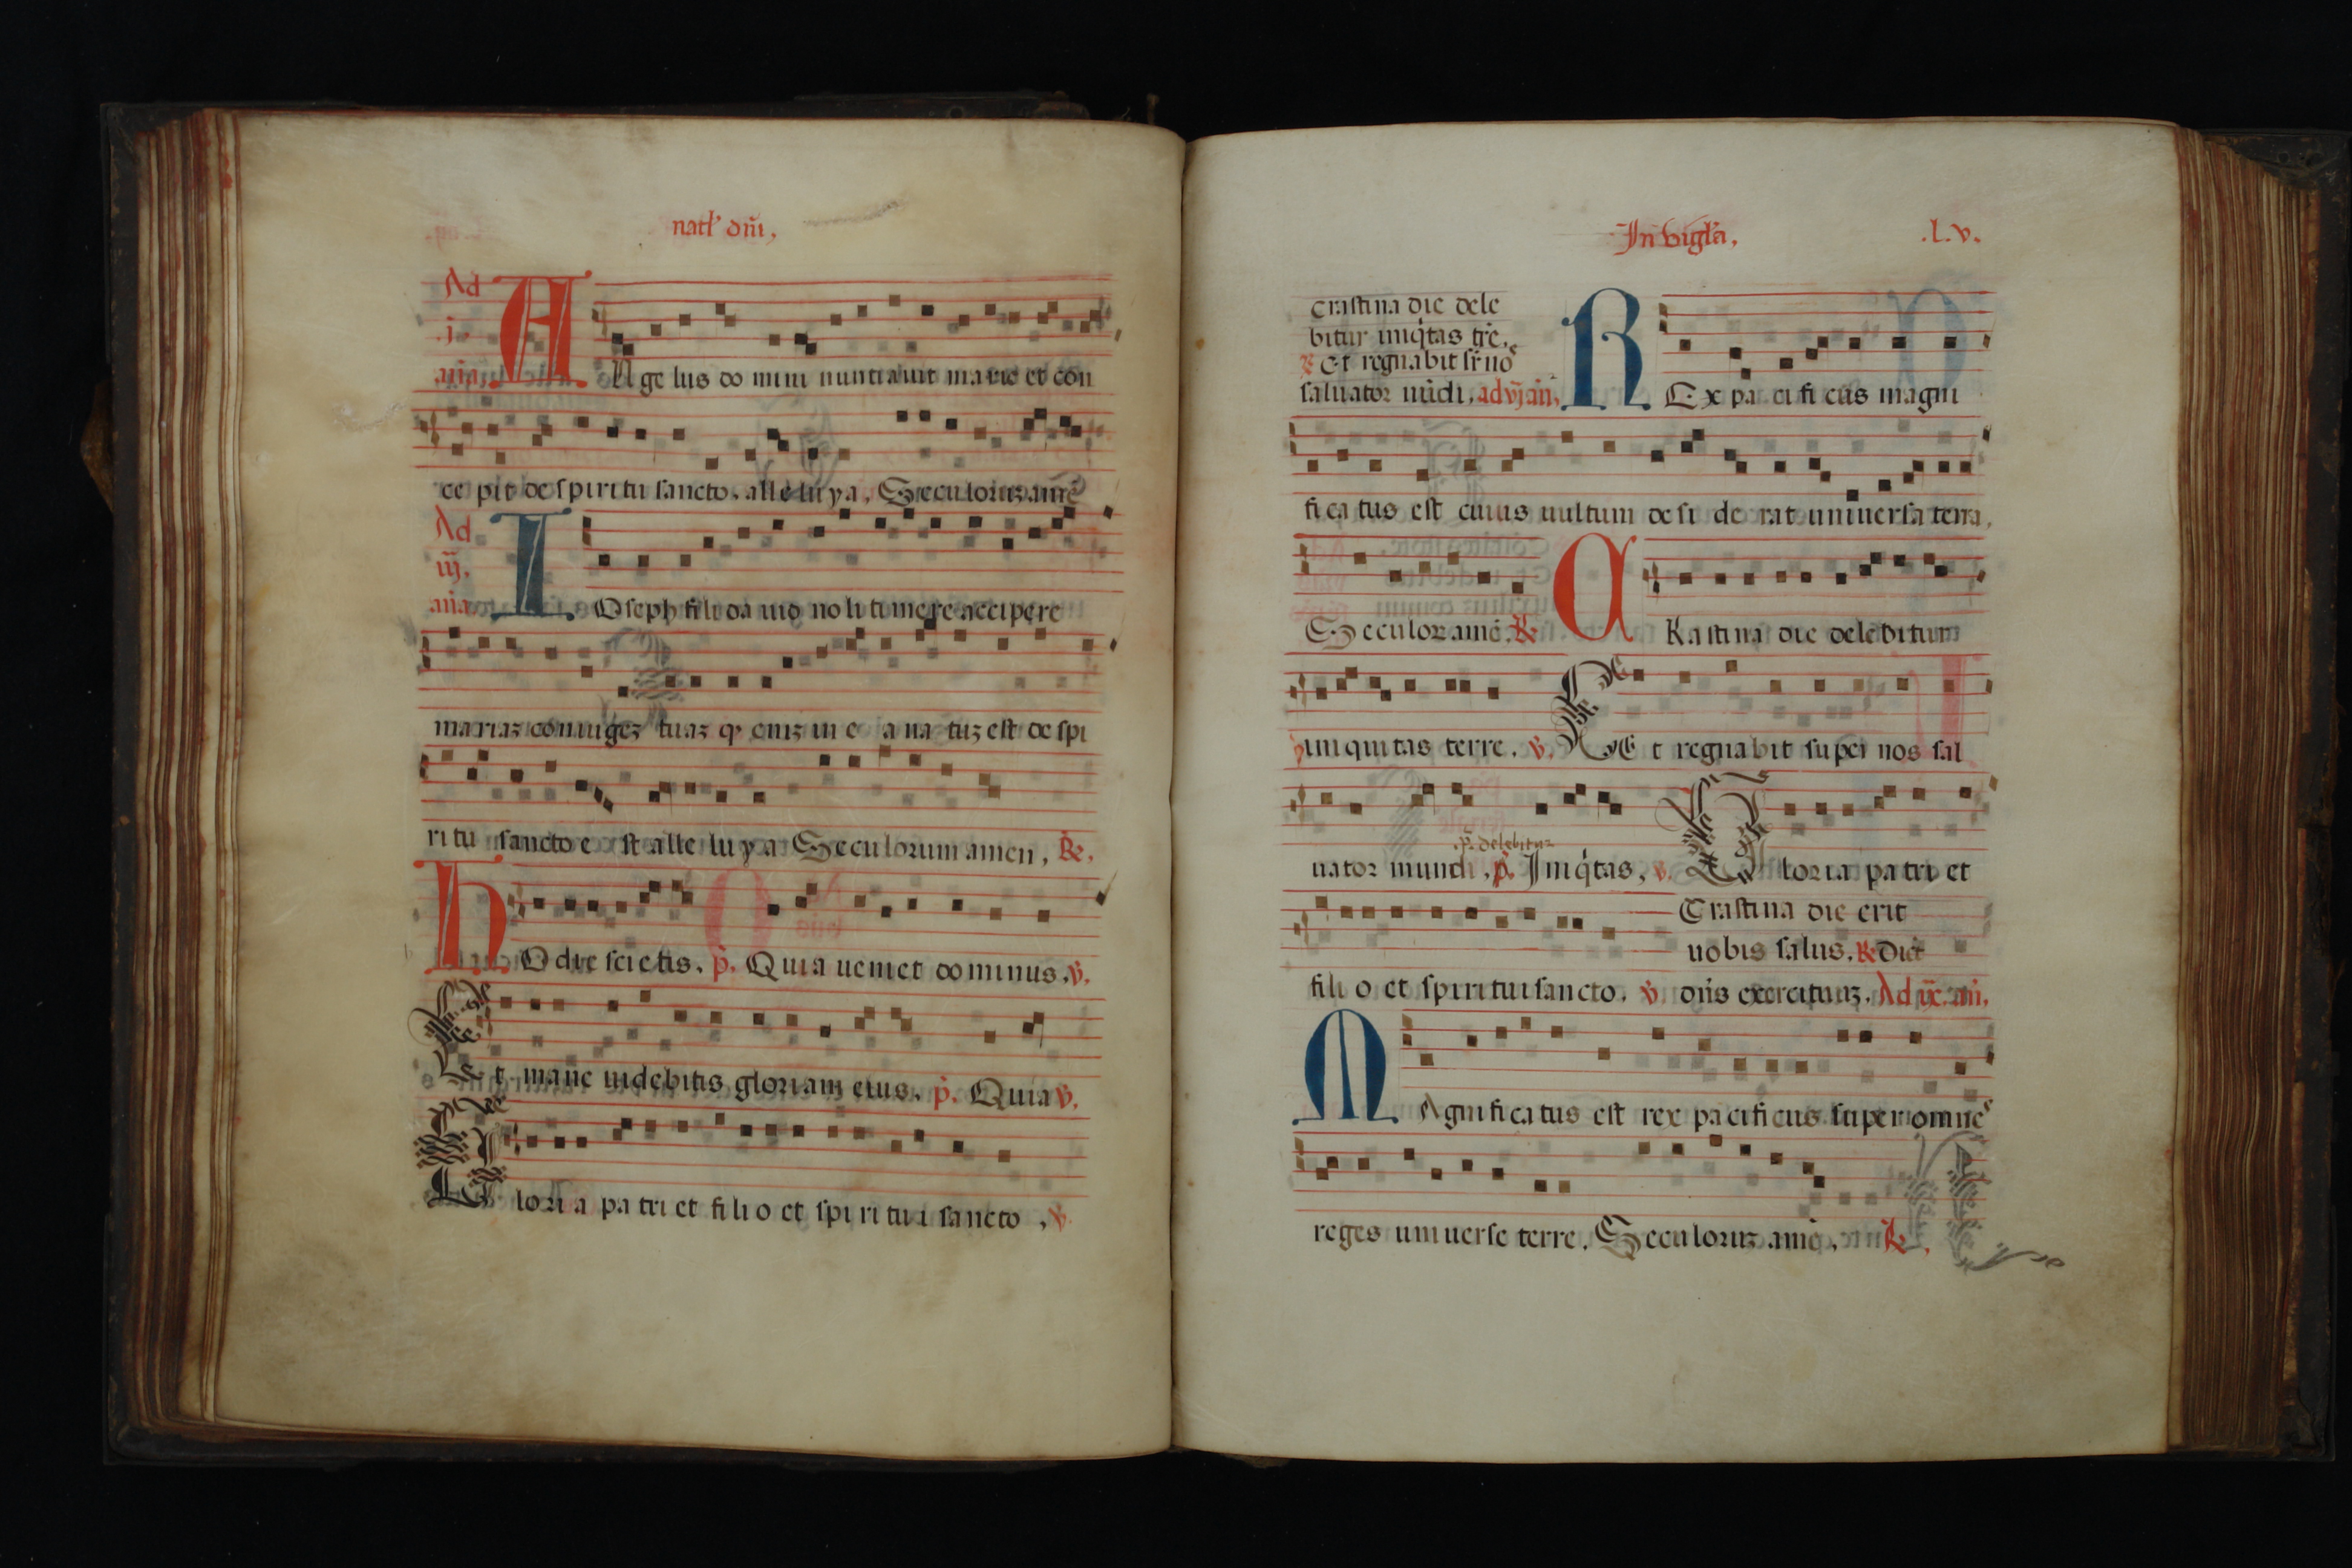 natł dñi,
Ad
.i.
aña.
Angelus do mini nuntiauit marie et con
ce pit de spiritu sancto. alle lu ya, Seculoruz amē
Ad
iij.
aña
IOseph fili da uid no li timere accipere
mariaz coniugez tuaz q, eniz in e a na tuz est de spi
ritu sancto e st alle lu ya Seculorum amen, ℟.
HOdie scietis. p̄. Quia ueniet dominus. ℣.
Et mane uidebitis gloriam eius. p̄. Quia ℣.
Glori a pa tri et fi li o et spi ri tu i sancto, ℣
In vigła, .l.v.
Crastina die dele
bitur iniq̇tas tr̄e.
℣ Et regnabit sr̄ nos
saluator mūdi, ad vj añ.
REx pa ci fi cus magni
fi ca tus est cuius uultum de si de rat uniuersa terra,
Seculoꝝ amē. ℟
CRastina die delebitur
iniquitas terre. ℣. Et regnabit super nos sal
p̄. delebitur
uator mundi, p̄. Iniq̇tas, ℣. Gloria pa tri et
Crastina die erit
uobis salus. ℟ Dic̄t
fili o et spiritui sancto. ℣ dn̄s exercituuz. Ad ix. añ.
MAgnificatus est rex pacificus super omnes
reges uniuerse terre. Seculoruz amē. ℟.